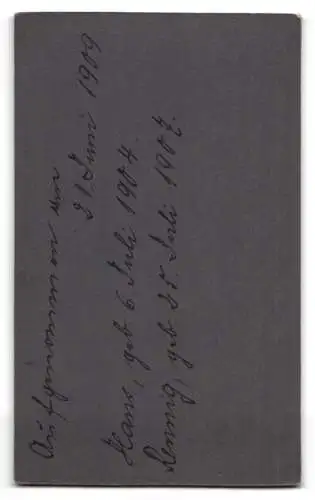 Aufgenommen am
21. Juni 1909
Hans, geb 6. Juli 1904.
Hennig, geb 25. Juli 1907.